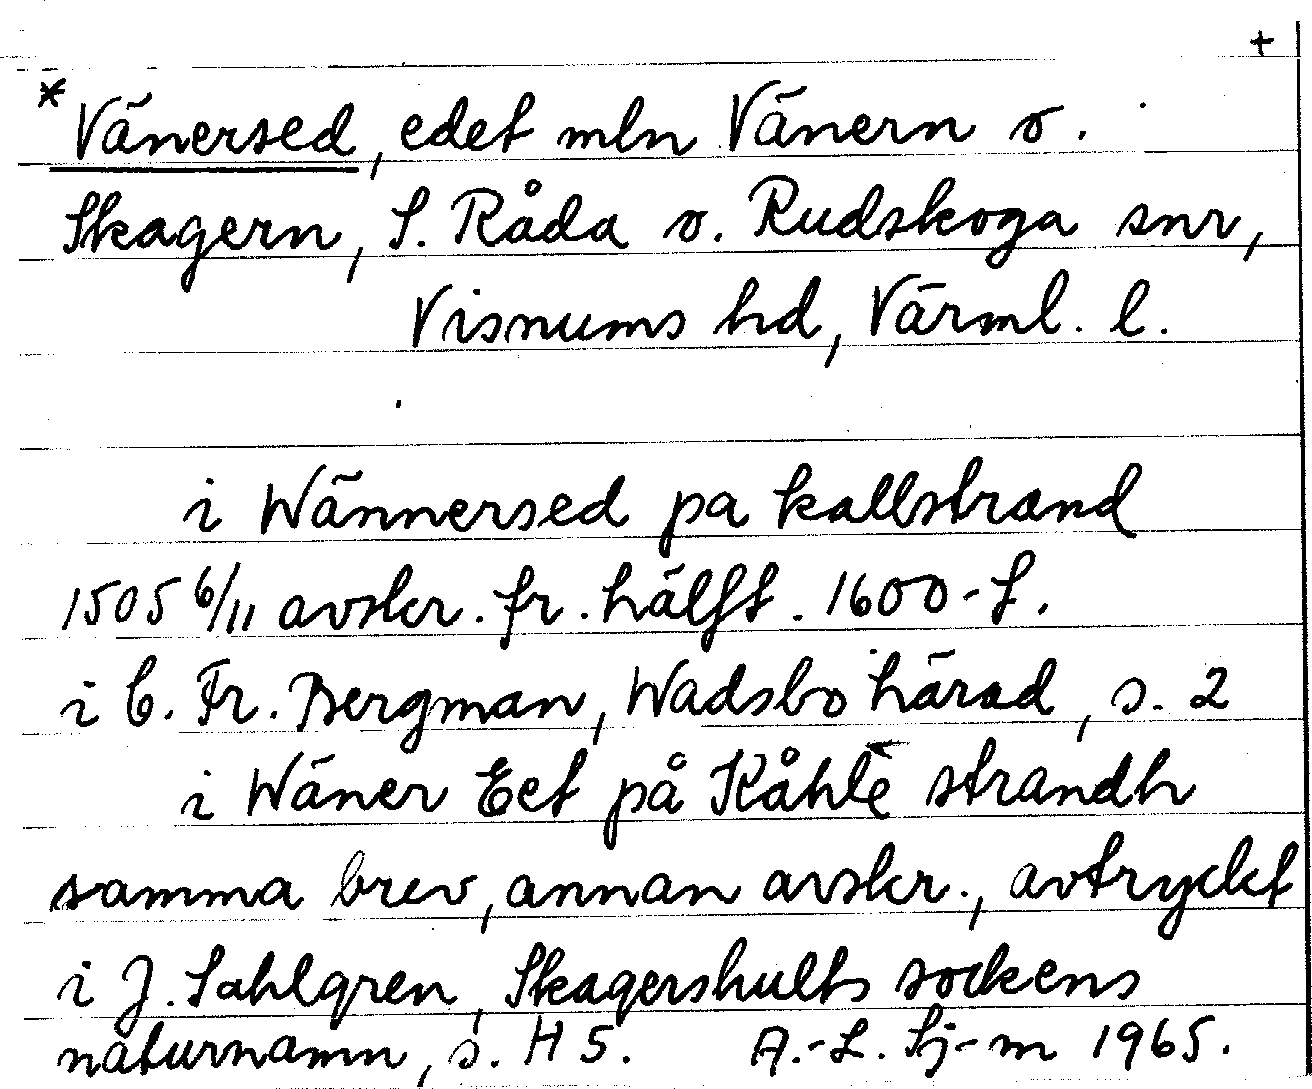 +
*Vänersed, edet mln Vänern o.
Skagern, S. Råda o. Rudskoga snr,
Visnums hd, Värml. l.
i Wännersed pa kallstrand
1505 6/11 avskr. fr. hälft. 1600-t.
i C. Fr. Bergman, Wadsbo härad, s. 2
i Wäner Eet på Kåhle strandh
samma brev, annan avskr., avtryckt
i J. Sahlgren, Skagershults sockens
naturnamn, s. H 5. A.-L. Sj-m 1965.